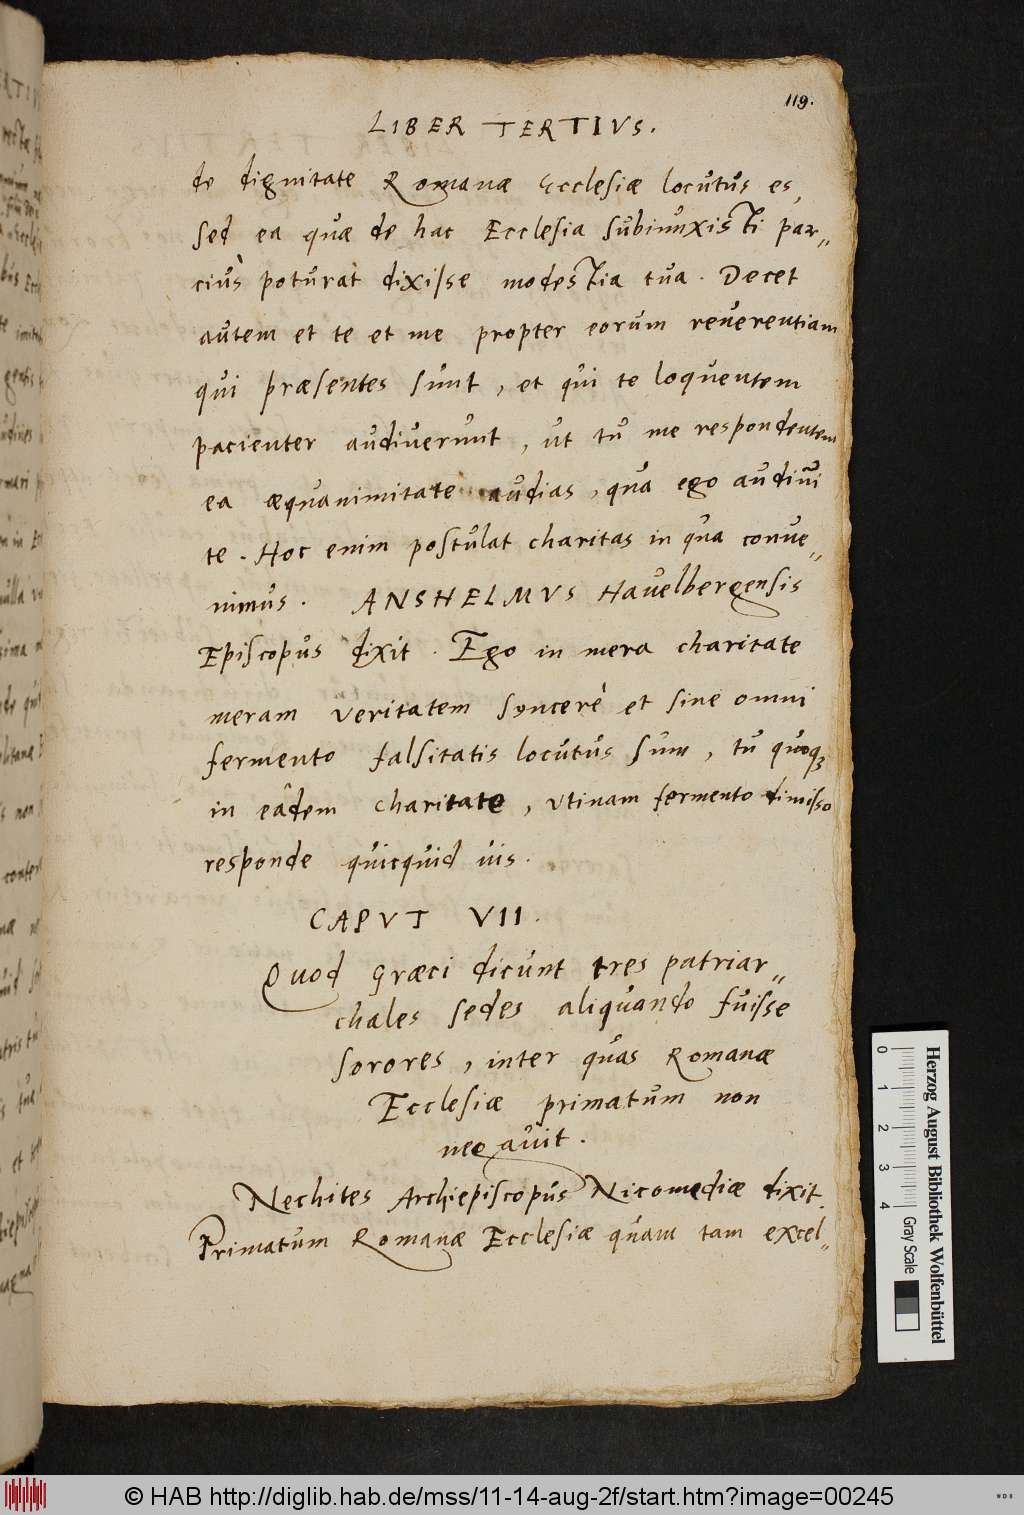 119.
LIBER TERTIVS.
de dignitate Romanæ Ecclesiæ locutus es,
sed ea quæ de hac Ecclesia subiunxisti par„
ciùs poturat dixisse modestia tua. Decet
autem et te et me propter eorum reuerentiam
qui præsentes sunt, et qui te loquentem
pacienter audiuerunt, ut tu me respondentem
ea æquanimitate audias, qua ego audiui
te. Hoc enim postulat charitas in qua conue„
nimus. ANSHELMVS Hauelbergensis
Episcopus dixit. Ego in mera charitate
meram veritatem syncerè et sine omni
fermento falsitatis locutus sum, tu quoqꝫ
in eâdem charitate, vtinam fermento dimisso
responde quicquid uis.
CAPVT VII.
Quod Græci dicunt tres patriar„
chales sedes aliquando fuisse
sorores, inter quas Romanæ
Ecclesiæ primatum non
negauit.
Nechites Archiepiscopus Nicomediæ dixit.
Primatum Romanæ Ecclesiæ quam tam excel„
0 1 2 3 4
Herzog August Bibliothek Wolfenbüttel
Gray Scale
© HAB http://diglib.hab.de/mss/11-14-aug-2f/start.htm?image=00245